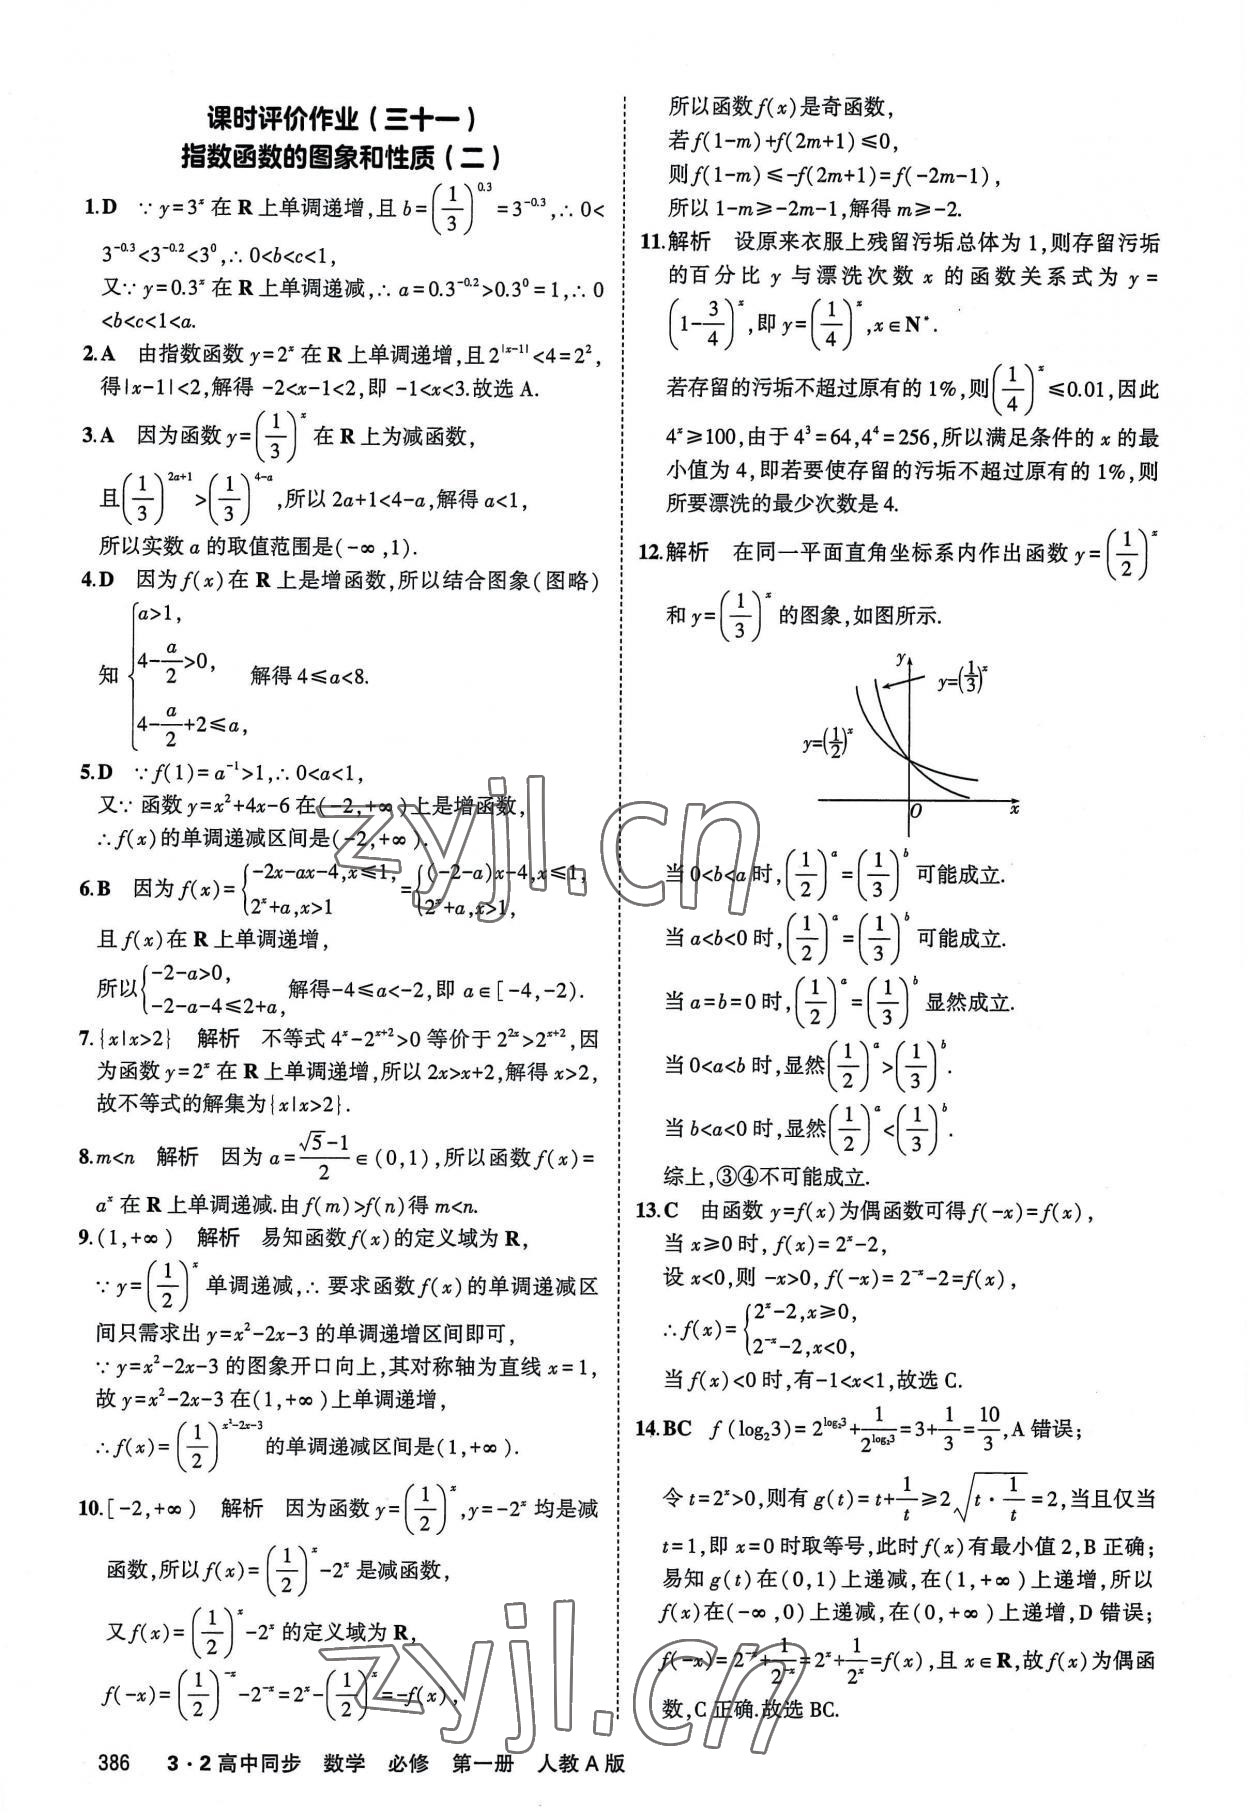 课时评价作业(三十一)
指数函数的图象和性质(二)
1.D ∵y=3ˣ在R上单调递增,且b=(1/3)^0.3=3^-0.3,∴0<
3^-0.3<3^-0.2<3^0,∴0<b<c<1,
又∵y=0.3ˣ在R上单调递减,∴a=0.3^-0.2>0.3^0=1,∴0
<b<c<1<a.
2.A 由指数函数y=2ˣ在R上单调递增,且2^|x-1|<4=2²,
得|x-1|<2,解得 -2<x-1<2,即 -1<x<3.故选A.
3.A 因为函数y=(1/3)ˣ在R上为减函数,
且(1/3)^(2a+1)>(1/3)^(4-a),所以2a+1<4-a,解得a<1,
所以实数a的取值范围是(-∞,1).
4.D 因为f(x)在R上是增函数,所以结合图象(图略)
知{a>1,
4-a/2>0,
4-a/2+2≤a,
解得4≤a<8.
5.D ∵f(1)=a^-1>1,∴0<a<1,
又∵函数y=x²+4x-6在(-2,+∞)上是增函数,
∴f(x)的单调递减区间是(-2,+∞).
6.B 因为f(x)={-2x-ax-4,x≤1, 2ˣ+a,x>1 ={(-2-a)x-4,x≤1, 2ˣ+a,x>1,
且f(x)在R上单调递增,
所以{-2-a>0, -2-a-4≤2+a, 解得-4≤a<-2,即a∈[-4,-2).
7.{x|x>2} 解析 不等式4ˣ-2^(x+2)>0等价于2^2x>2^(x+2),因
为函数y=2ˣ在R上单调递增,所以2x>x+2,解得x>2,
故不等式的解集为{x|x>2}.
8.m<n 解析 因为a=(√5-1)/2∈(0,1),所以函数f(x)=
aˣ在R上单调递减.由f(m)>f(n)得m<n.
9.(1,+∞) 解析 易知函数f(x)的定义域为R,
∵y=(1/2)ˣ单调递减,∴要求函数f(x)的单调递减区
间只需求出y=x²-2x-3的单调递增区间即可,
∵y=x²-2x-3的图象开口向上,其对称轴为直线x=1,
故y=x²-2x-3在(1,+∞)上单调递增,
∴f(x)=(1/2)^(x²-2x-3)的单调递减区间是(1,+∞).
10.[-2,+∞) 解析 因为函数y=(1/2)ˣ,y=-2ˣ均是减
函数,所以f(x)=(1/2)ˣ-2ˣ是减函数,
又f(x)=(1/2)ˣ-2ˣ的定义域为R,
f(-x)=(1/2)^-x-2^-x=2ˣ-(1/2)ˣ=-f(x),
所以函数f(x)是奇函数,
若f(1-m)+f(2m+1)≤0,
则f(1-m)≤-f(2m+1)=f(-2m-1),
所以1-m≥-2m-1,解得m≥-2.
11.解析 设原来衣服上残留污垢总体为1,则存留污垢
的百分比y与漂洗次数x的函数关系式为y=
(1-3/4)ˣ,即y=(1/4)ˣ,x∈N*.
若存留的污垢不超过原有的1%,则(1/4)ˣ≤0.01,因此
4ˣ≥100,由于4³=64,4⁴=256,所以满足条件的x的最
小值为4,即若要使存留的污垢不超过原有的1%,则
所要漂洗的最少次数是4.
12.解析 在同一平面直角坐标系内作出函数y=(1/2)ˣ
和y=(1/3)ˣ的图象,如图所示.
y
y=(1/3)ˣ
y=(1/2)ˣ
O x
当0<b<a时,(1/2)^a=(1/3)^b可能成立.
当a<b<0时,(1/2)^a=(1/3)^b可能成立.
当a=b=0时,(1/2)^a=(1/3)^b显然成立.
当0<a<b时,显然(1/2)^a>(1/3)^b.
当b<a<0时,显然(1/2)^a<(1/3)^b.
综上,③④不可能成立.
13.C 由函数y=f(x)为偶函数可得f(-x)=f(x),
当x≥0时,f(x)=2ˣ-2,
设x<0,则-x>0,f(-x)=2^-x-2=f(x),
∴f(x)={2ˣ-2,x≥0, 2^-x-2,x<0,
当f(x)<0时,有-1<x<1,故选C.
14.BC f(log₂3)=2^(log₂3)+1/2^(log₂3)=3+1/3=10/3,A错误;
令t=2ˣ>0,则有g(t)=t+1/t≥2√(t·1/t)=2,当且仅当
t=1,即x=0时取等号,此时f(x)有最小值2,B正确;
易知g(t)在(0,1)上递减,在(1,+∞)上递增,所以
f(x)在(-∞,0)上递减,在(0,+∞)上递增,D错误;
f(-x)=2^-x+1/2^-x=2ˣ+1/2ˣ=f(x),且x∈R,故f(x)为偶函
数,C正确.故选BC.
386 3·2高中同步 数学 必修 第一册 人教A版
zyjl.cn
zyjl.cn